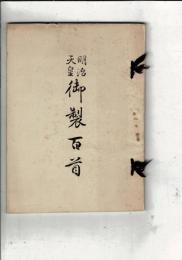 明治
天皇
御製百首